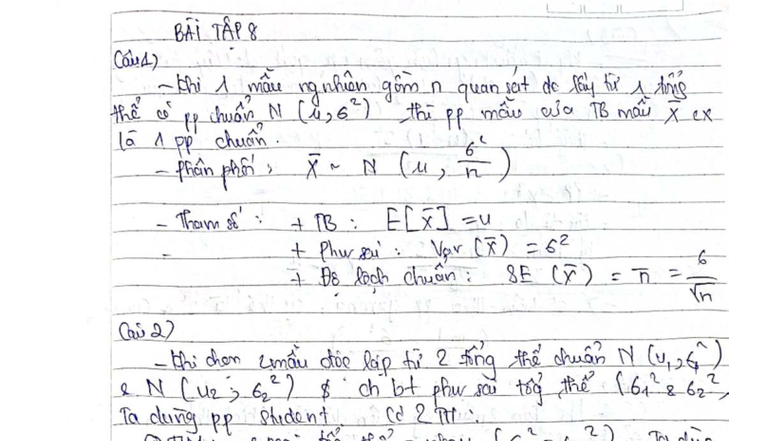 BÀI TẬP 8
Câu 1)
- Khi 1 mẫu ng nhiên gồm n quan sát đc lấy từ 1 tổng
thể có pp chuẩn N (μ, σ²) thì pp mẫu của TB mẫu X̄ cx
là 1 pp chuẩn.
- Phân phối: X̄ ~ N (μ, σ²/n)
- Tham số: + TB: E[X̄] = μ
- + Phư sai: Var (X̄) = σ²
+ Độ lệch chuẩn: SE (X̄) = n̄ = σ/√n
Câu 2)
- Khi chọn 2 mẫu độc lập từ 2 tổng thể chuẩn N (μ₁, σ₁²)
& N (μ₂; σ₂²) $ ch bt phư sai tổg thể (σ1² & σ2²,
Ta dùng pp student Có 2 TH: